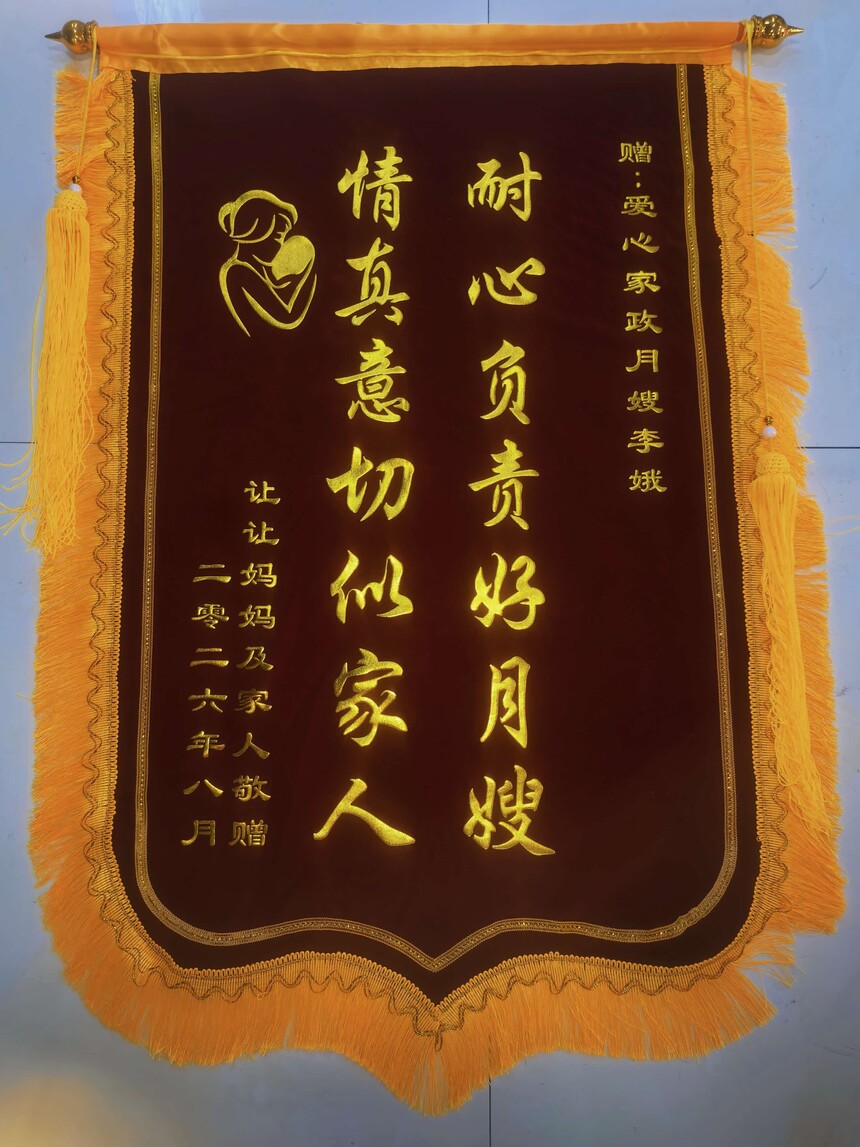 赠：爱心家政月嫂李娥
耐心负责好月嫂
情真意切似家人
让让妈妈及家人敬赠
二零二六年八月